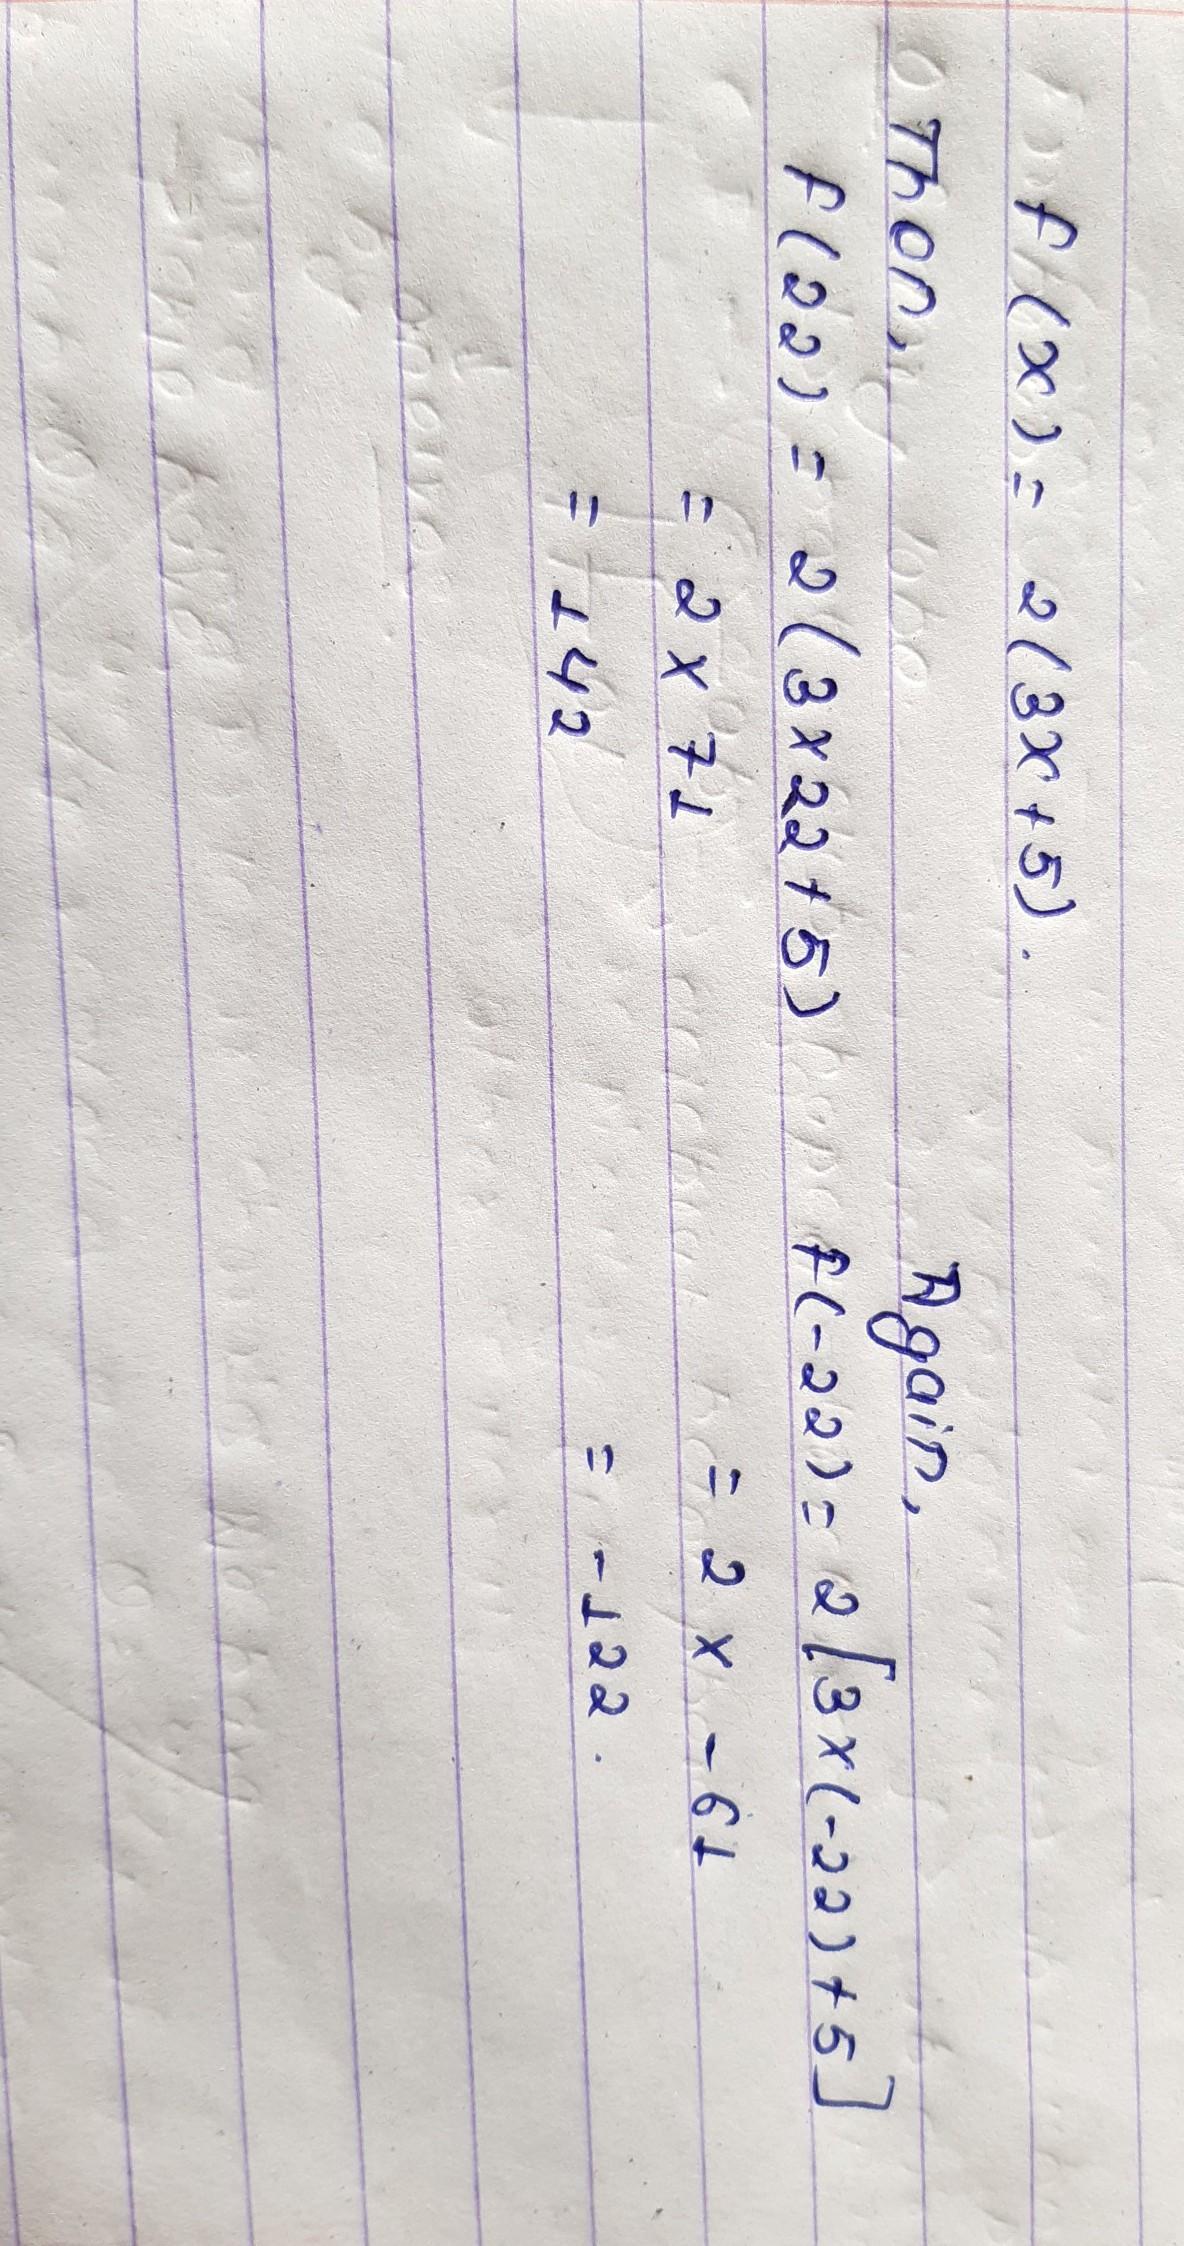 f(x) = 2(3x+5).
Then,
f(22) = 2(3×22+5)
= 2×71
= 142
Again,
f(-22) = 2[3×(-22)+5]
= 2 × -61
= -122.